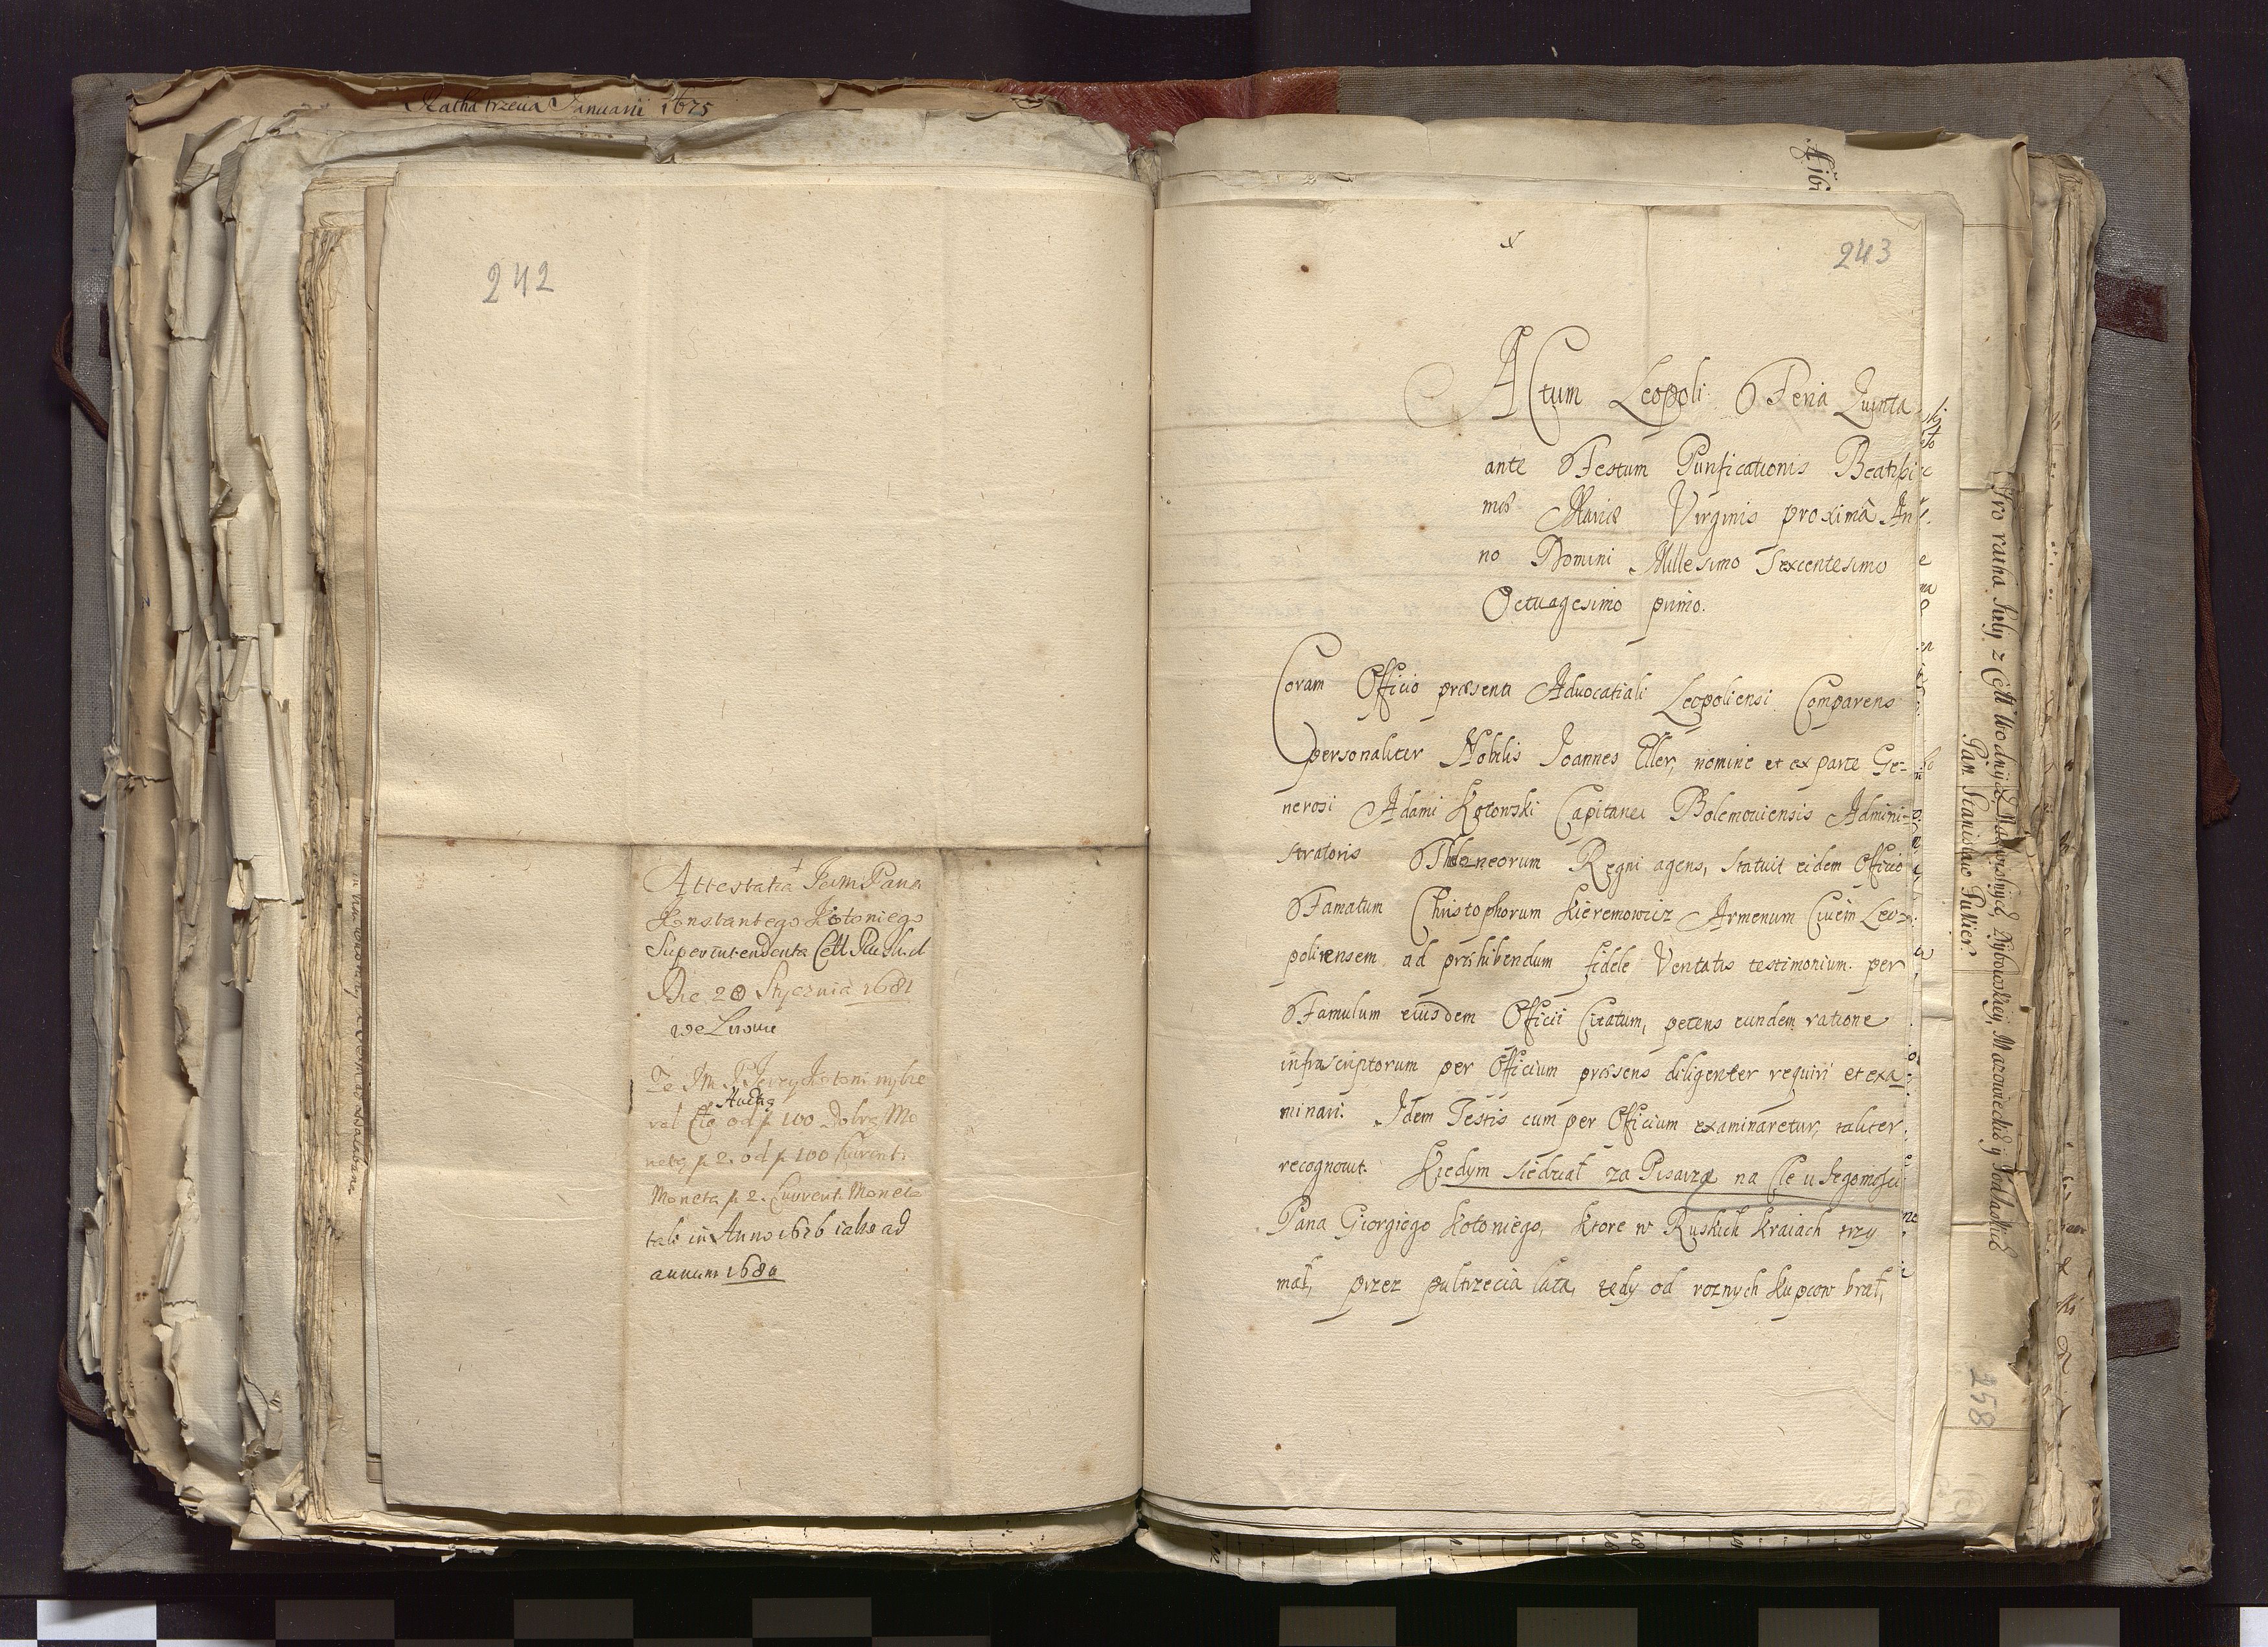 Ratha trzecia Januarii 1675
242
Attestatia Jeo Mci Pana
Konstantego Kotoniego
Superintendenta Cell Rusk. d
Die 20 Stycznia 1681
we Lwowie
Że Jm. P. Jerzy Kotoni wybie
Auctą
rał Cło od f. 100 Dobrą Mo
netą f. 2. od f. 100 Current.
Moneta f. 2. Current. Moneta
tak in Anno 1676 iako ad
annum 1680
243
Actum Leopoli Feria Quinta
ante Festum Purificationis Beatissi
mæ Mariæ Virginis proximâ An
no Domini Millesimo Sexcentesimo
Octuagesimo primo.
Coram Officio præsenti Advocatiali Leopoliensi Comparens
personaliter Nobilis Joannes Eller, nomine et ex parte Ge-
nerosi Adami Kotowski Capitanei Bolemoviensis Admini-
stratoris Theloneorum Regni agens, statuit eidem Officio
Famatum Christophorum Kieremowicz Armenum Civem Leo-
poliensem ad præhibendum fidele Veritatis testimonium per
Famulum eiusdem Officii Citatum, petens eundem ratione
infrascriptorum per Officium præsens diligenter requiri et exa
minari. Idem Testis cum per Officium examinaretur, taliter
recognovit. Kiedym siedział za Pisarza na Cle u Jegomości
Pana Giorgiego Kotoniego, ktore w Ruskich kraiach trzy
mał, przez pultrzecia lata, tedy od roznych kupcow brał,
Pro ratha Julij z Cell Wodnych Nadwiślnych, Zybowskiey, Mazowieckich y Podlaskich
Pan Stanisław Pukier.
258